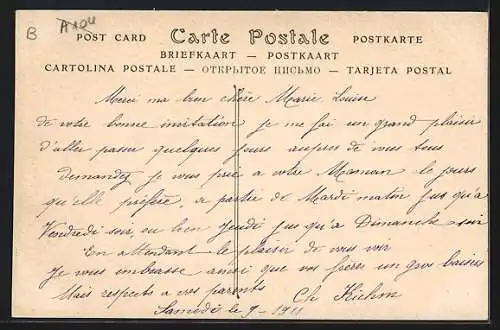 B A10U
POST CARD Carte Postale POSTKARTE
BRIEFKAART — POSTKAART
CARTOLINA POSTALE — ОТКРЫТОЕ ПИСЬМО — TARJETA POSTAL
Merci ma bien chère Marie Louise
de votre bonne invitation je me fai un grand plaisir
d'aller passer quelques jours aupres de vous tous
demandez je vous prie a votre Maman le jours
qu'elle préfère, a partir de Mardi matin jus qu'a
Vendredi soir, ou bien Jeudi jus qu'a Dimanche soir
En attendant le plaisir de vous voir
Je vous imbrasse ainsi que vos frères un gros baisers
Mais respects a vos parents Ch Kiehm
Samedi le 9 - 1911